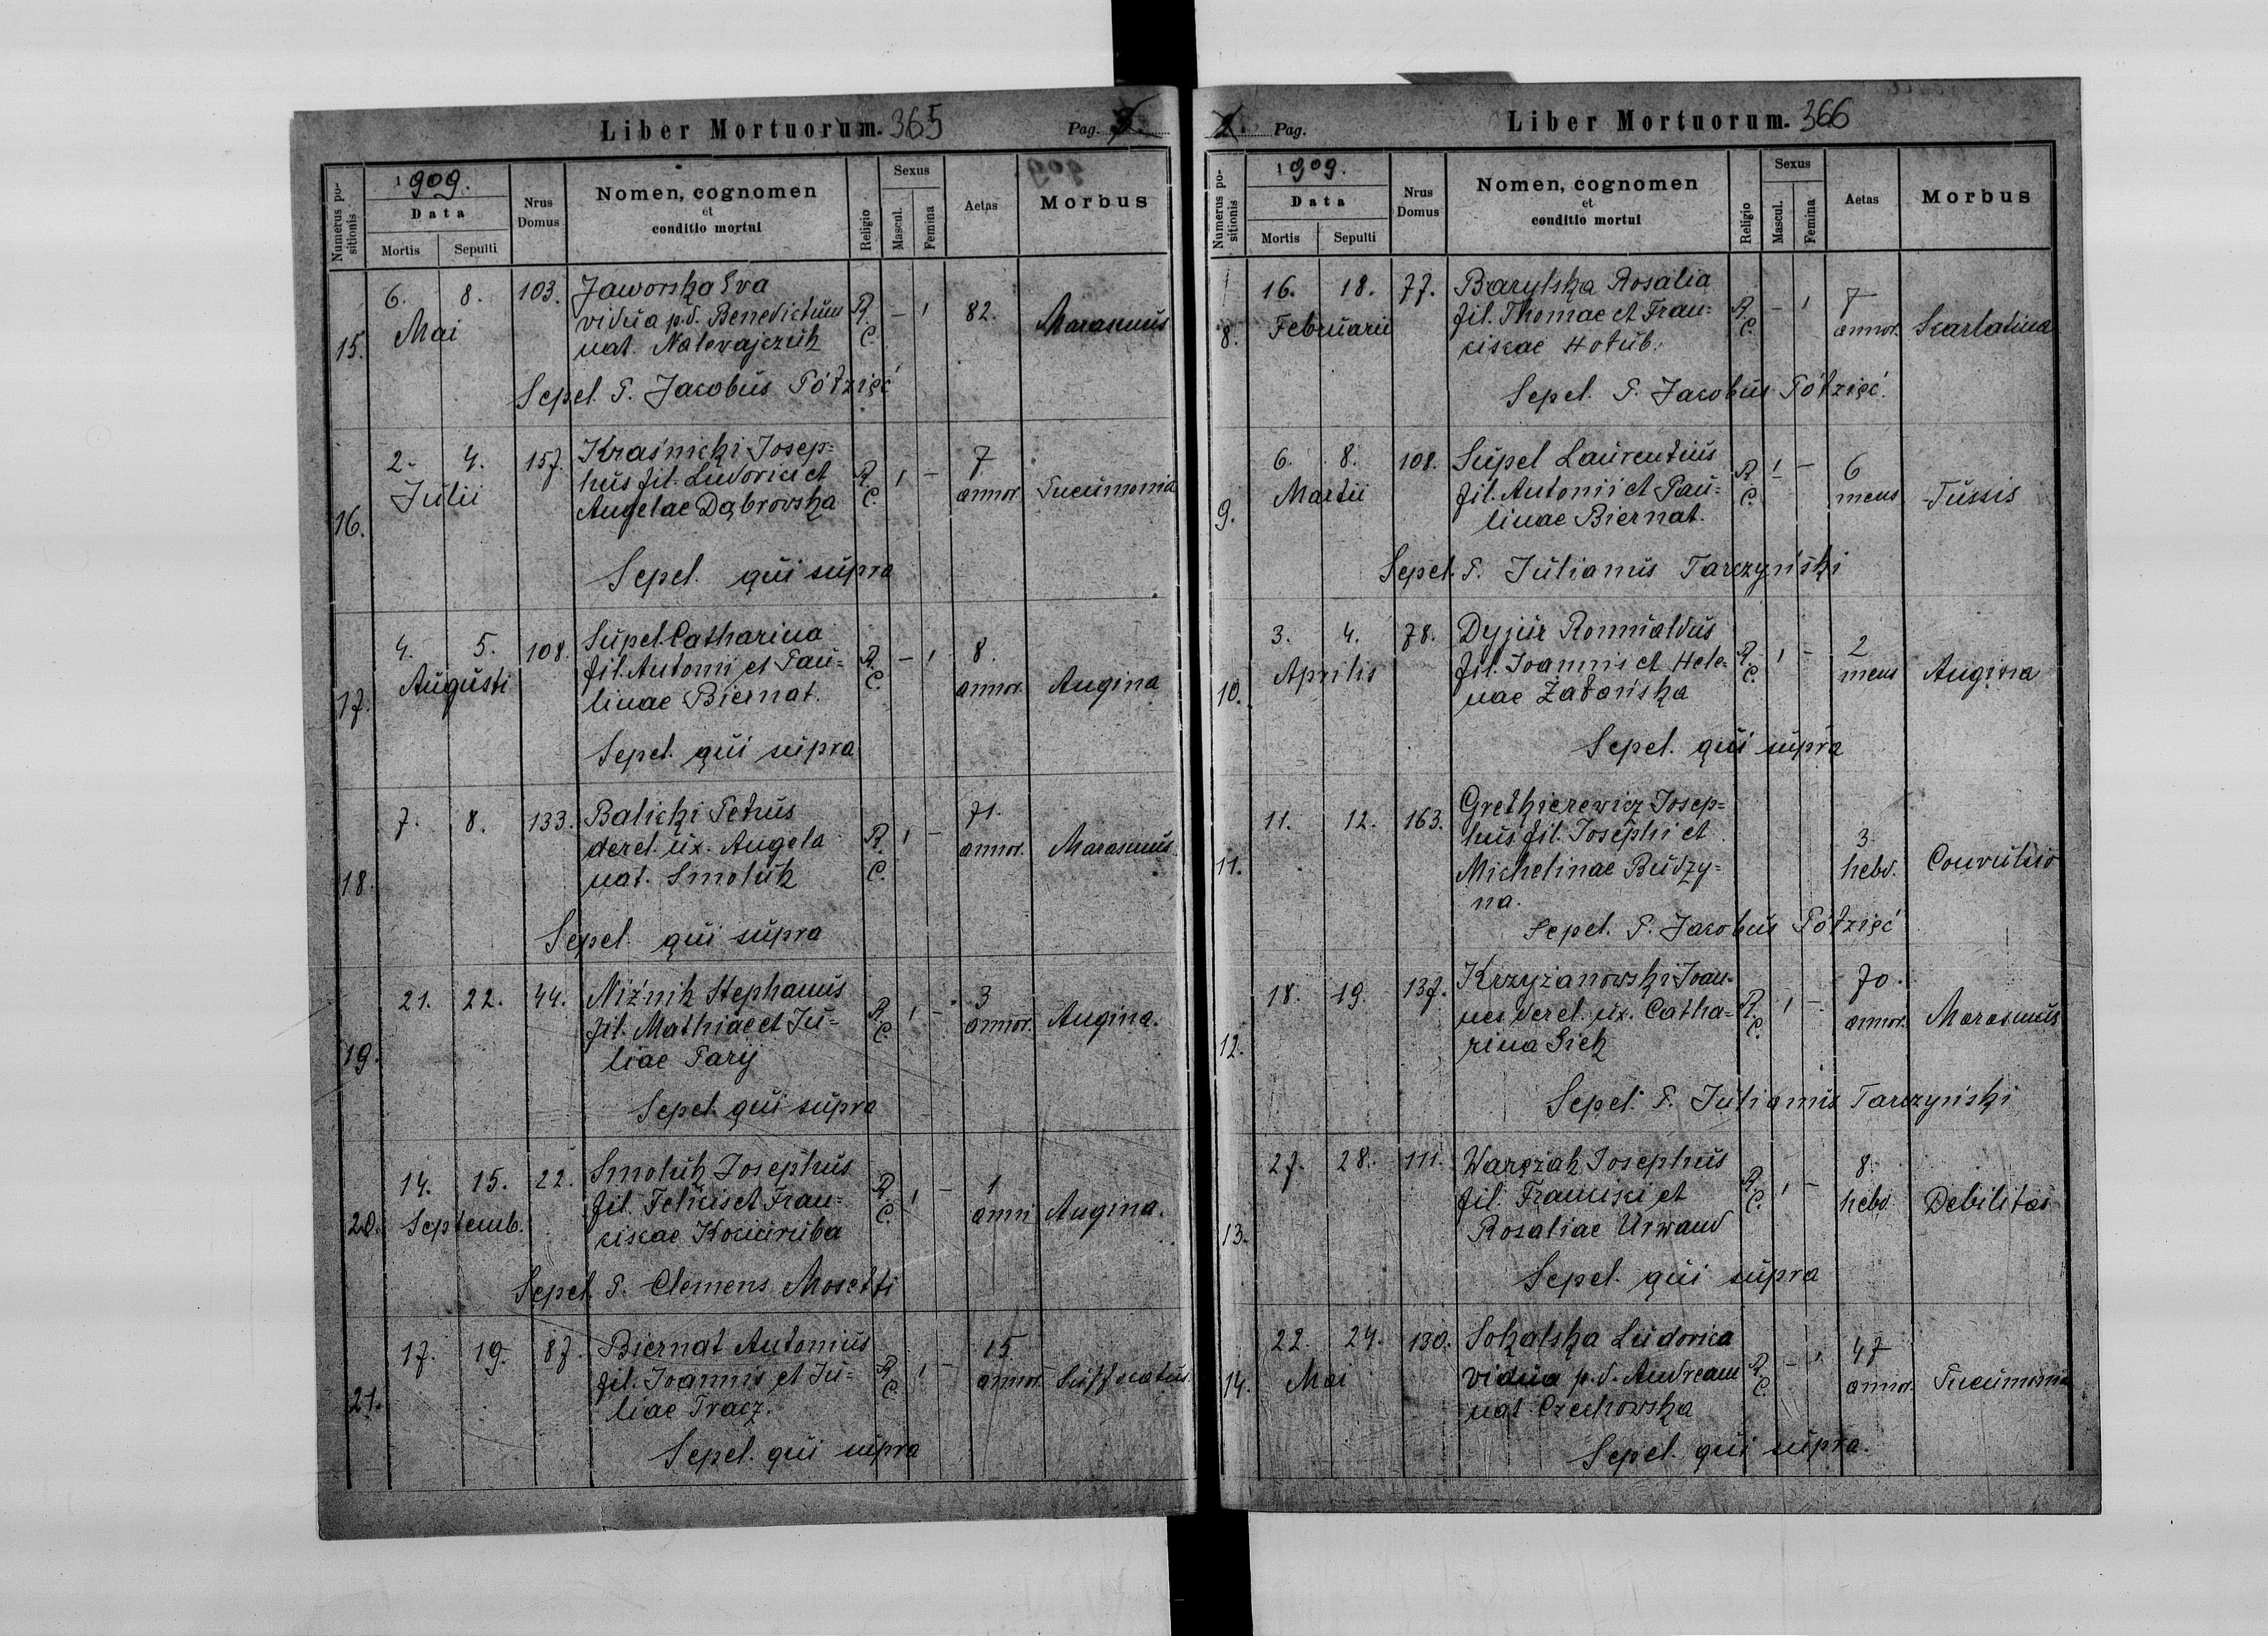 Liber Mortuorum. 365
Pag.
Numerus positionis
1909.
Data
Mortis
Sepulti
Nrus Domus
Nomen, cognomen
et
conditio mortui
Religio
Sexus
Mascul.
Femina
Aetas
Morbus
15.
6. 8. 103. Jaworska Eva
Mai
vidua p.d. Benedictum R. – 1 82. Marasmus
nat. Nalewajczuk C.
Sepel. P. Jacobus Półzięć
16.
2. 4. 157. Kraśnicki Josep=
Julii
hus fil. Ludovici et R. 1 – 7
Angelae Dąbrowska C. annor. Pneumonia
Sepel. qui supra
17.
4. 5. 108. Supel Catharina
Augusti
fil. Antonii et Pau= R. – 1 8.
linae Biernat. C. annor. Angina
Sepel. qui supra
18.
7. 8. 133. Balicki Petrus 71.
derel. ux. Angela R. 1 – annor. Marasmus
nat. Smoluk C.
Sepel. qui supra
19.
21. 22. 44. Niźnik Stephanus 3
fil. Mathiae et Ju= R. 1 – annor. Angina.
liae Pary C.
Sepel. qui supra
20.
14. 15. 22. Smoluk Josephus
Septemb.
fil. Felicis et Fran= R. 1 – 1
ciscae Kociuruba C. anni Angina.
Sepel. P. Clemens Moschti
21.
17. 19. 87. Biernat Antonius 15
fil. Joannis et Ju= R. 1 – annor. Suffocatus.
liae Tracz. C.
Sepel. qui supra
Pag.
Liber Mortuorum. 366
Numerus positionis
1909.
Data
Mortis
Sepulti
Nrus Domus
Nomen, cognomen
et
conditio mortui
Religio
Sexus
Mascul.
Femina
Aetas
Morbus
8.
16. 18. 77. Barylska Rosalia
Februarii
fil. Thomae et Fran= R. – 1 7
ciscae Hołub. C. annor. Scarlatina
Sepel. P. Jacobus Półzięć.
9.
6. 8. 108. Supel Laurentius
Martii
fil. Antonii et Pau= R. 1 – 6
linae Biernat. C. mens Tussis
Sepel. P. Julianus Tarczyński
10.
3. 4. 78. Dyjur Romualdus
Aprilis
fil. Joannis et Hele= R. 1 – 2
nae Zatańska C. mens Angina
Sepel. qui supra
11.
11. 12. 163. Gretkierewicz Josep=
hus fil. Josephi et 3
Michelinae Budzy= hebd. Convulsio
na.
Sepel. P. Jacobus Półzięć
12.
18. 19. 137. Krzyżanowski Joan= 70.
nes derel. ux. Catha= R. 1 – annor. Marasmus
rina Sick C.
Sepel. P. Julianus Tarczyński
13.
27. 28. 111. Warczak Josephus 8.
fil. Francisci et R. 1 – hebd. Debilitas
Rosaliae Urwand C.
Sepel. qui supra
14.
22. 24. 130. Sokalska Ludovica
Mai
vidua p.d. Andream R. – 1 47
nat. Czechowska C. annor. Pneumonia
Sepel. qui supra.